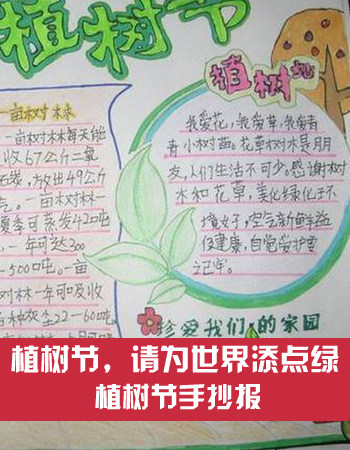 植树节
一亩树林
一亩树林每天能
收67公斤二氧
化碳,放出49公斤
一亩树林一
夏季可蒸发420吨
一年可达300
-500吨。一亩
树林一年可吸收
各种灰尘22-60吨
植树节
我爱花,我爱草,我爱青
青小树苗。花草树木是朋
友,人们生活不可少。感谢树
木和花草,美化绿化环
境好,空气新鲜益
促健康,自觉爱护要
记牢。
珍爱我们的家园
植树节,请为世界添点绿
植树节手抄报